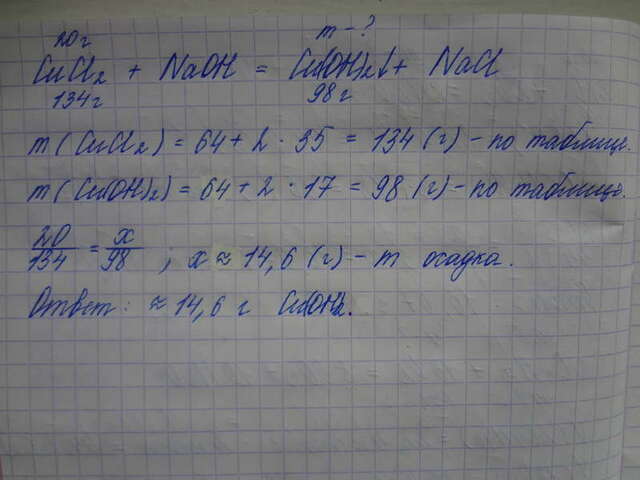 20 г m - ?
CuCl₂ + NaOH = Cu(OH)₂↓ + NaCl
134 г 98 г
m (CuCl₂) = 64 + 2 · 35 = 134 (г) - по таблице.
m (Cu(OH)₂) = 64 + 2 · 17 = 98 (г) - по таблице.
20/134 = x/98 ; x ≈ 14,6 (г) - m осадка.
Ответ: ≈ 14,6 г Cu(OH)₂.